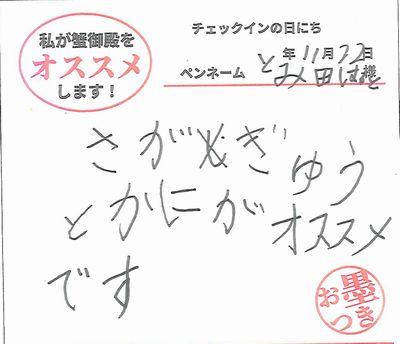 私が蟹御殿を
オススメ
します！
チェックインの日にち
年11月22日
ペンネーム とみ田 様
さがもぎゅう
とかにがオススメ
です
お墨つき